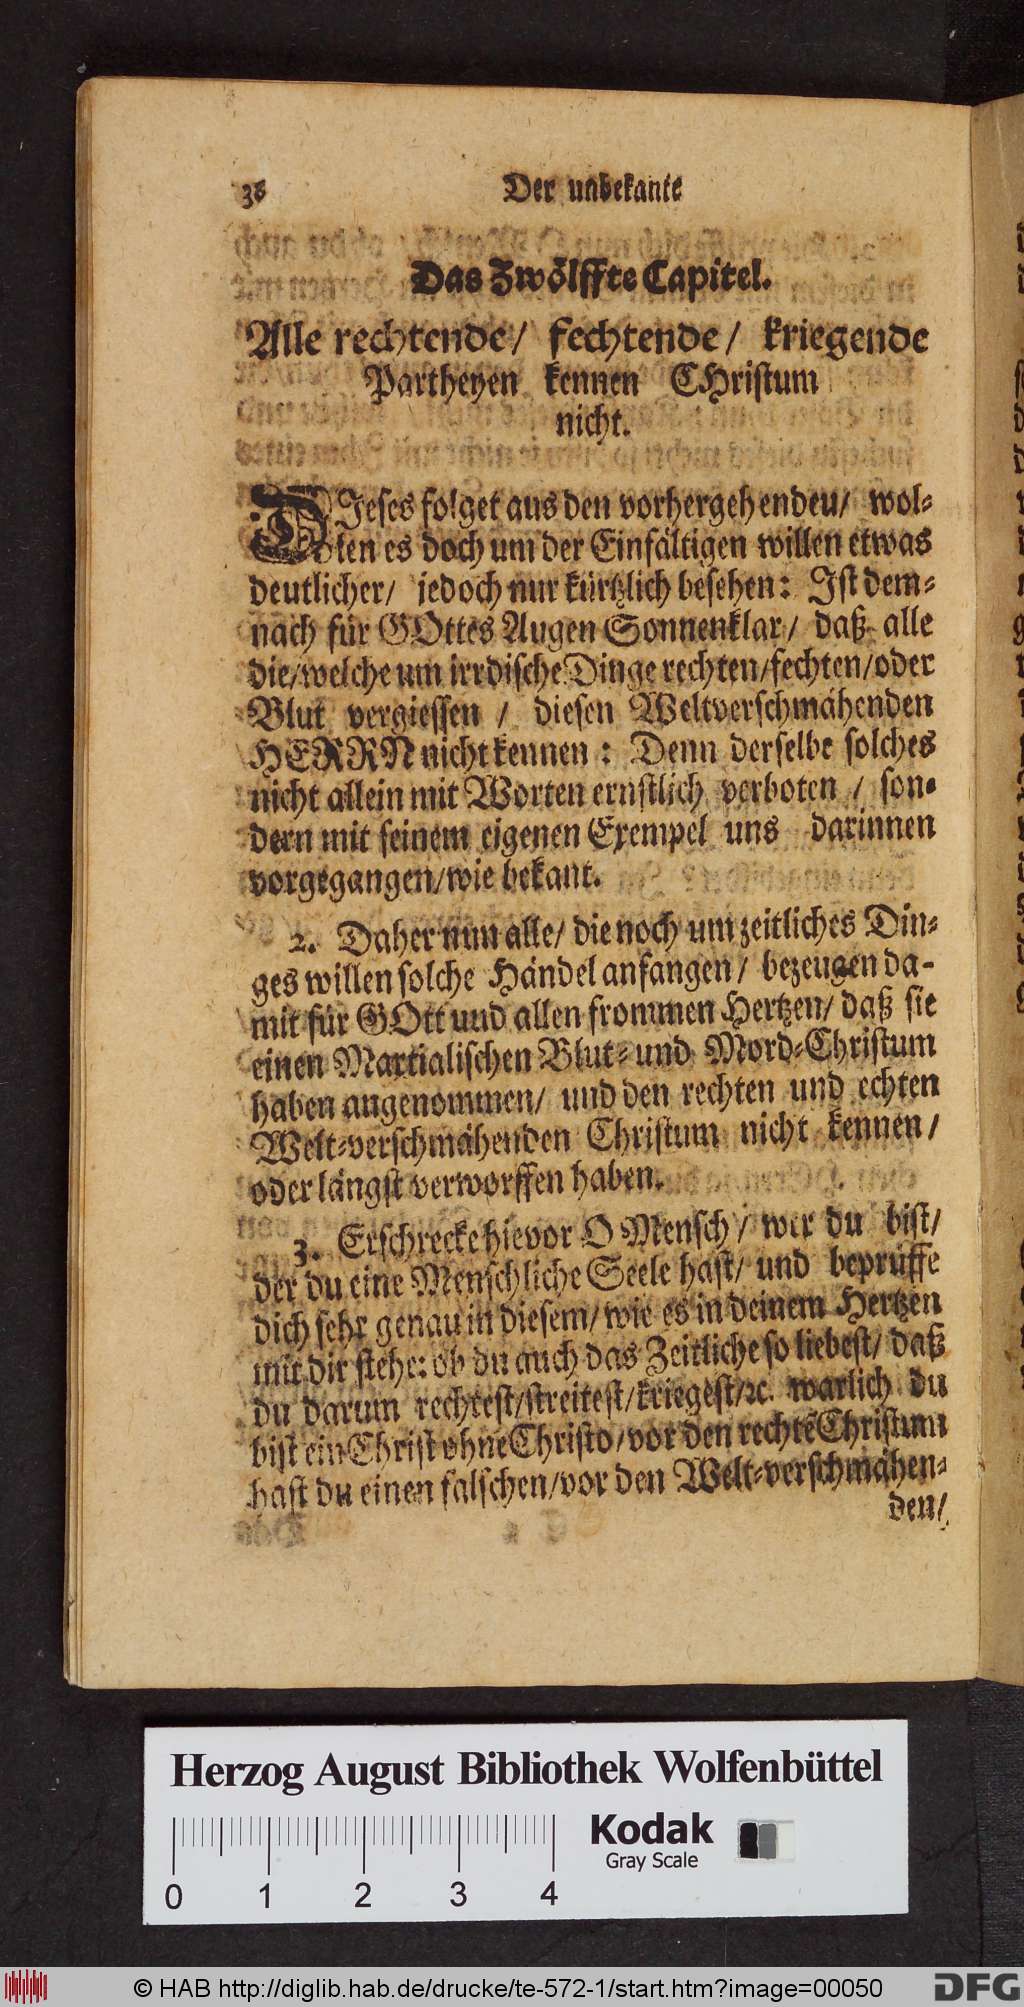 38 Der unbekante
Das Zwölffte Capitel.
Alle rechtende/ fechtende/ kriegende
Partheyen kennen CHristum
nicht.
DIeses folget aus den vorhergehendeu/ wol-
len es doch um der Einfältigen willen etwas
deutlicher/ jedoch nur kürtzlich besehen: Ist dem-
nach für GOttes Augen Sonnenklar/ daß alle
die/welche um irrdische Dinge rechten/fechten/oder
Blut vergiessen / diesen Weltverschmähenden
HERRN nicht kennen: Denn derselbe solches
nicht allein mit Worten ernstlich verboten / son-
dern mit seinem eigenen Exempel uns darinnen
vorgegangen/wie bekant.
2. Daher nun alle/ die noch um zeitliches Din-
ges willen solche Händel anfangen/ bezeugen da-
mit für GOtt und allen frommen Hertzen/ daß sie
einen Martialischen Blut- und Mord-Christum
haben angenommen/ und den rechten und echten
Welt-verschmähenden Christum nicht kennen/
oder längst verworffen haben.
3. Erschrecke hievor O Mensch/ wer du bist/
der du eine Menschliche Seele hast/ und beprüffe
dich sehr genau in diesem/ wie es in deinem Hertzen
mit dir stehe: ob du auch das Zeitliche so liebest/ daß
du darum rechtest/streitest/kriegest/ꝛc. warlich du
bist ein Christ ohne Christo/vor den rechtē Christum
hast du einen falschen/vor den Welt-verschmähen-
den/
Herzog August Bibliothek Wolfenbüttel
0 1 2 3 4
Kodak
Gray Scale
© HAB http://diglib.hab.de/drucke/te-572-1/start.htm?image=00050
DFG